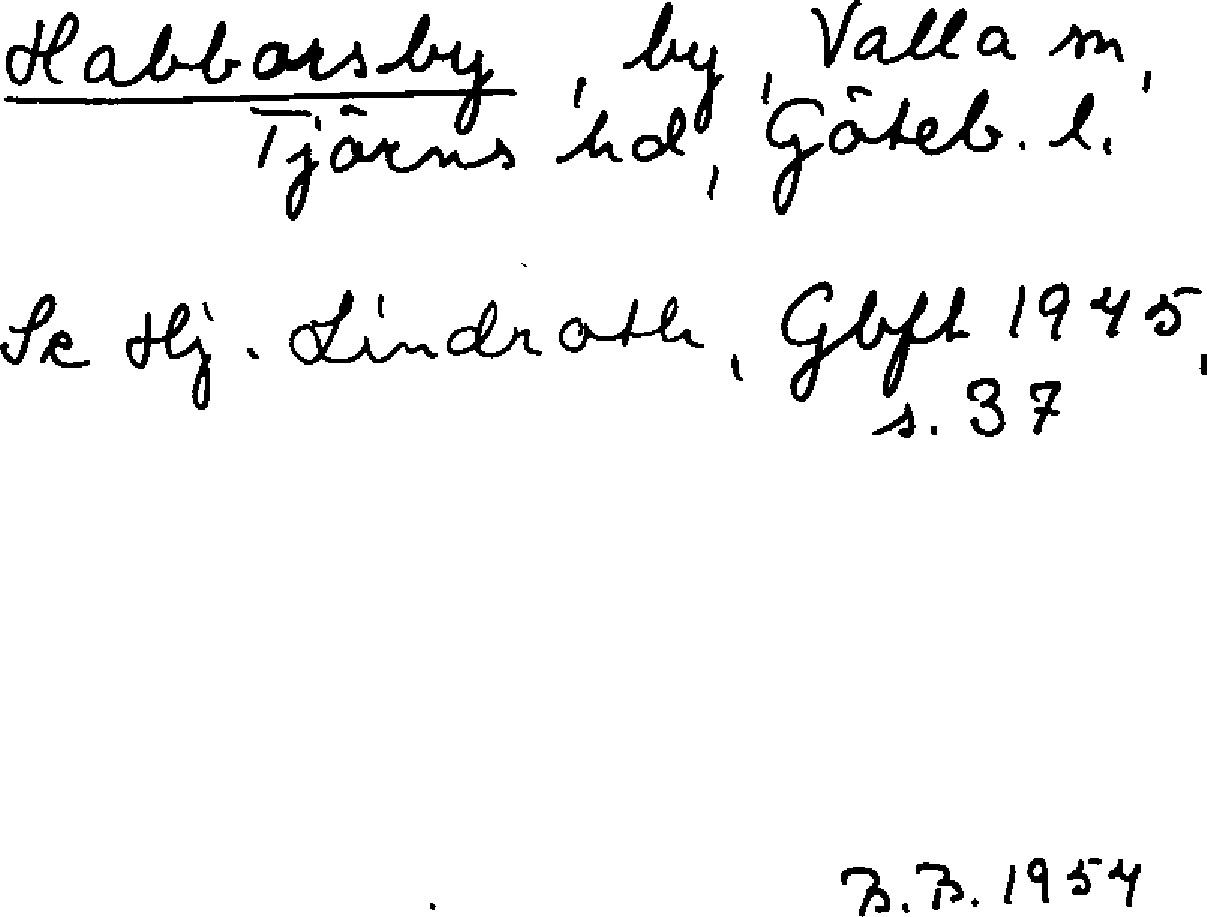 Habborsby, by, Valla sn,
Tjörns hd, Göteb. l.
Se Hj. Lindroth, Gbft 1945,
s. 37
B.B. 1954